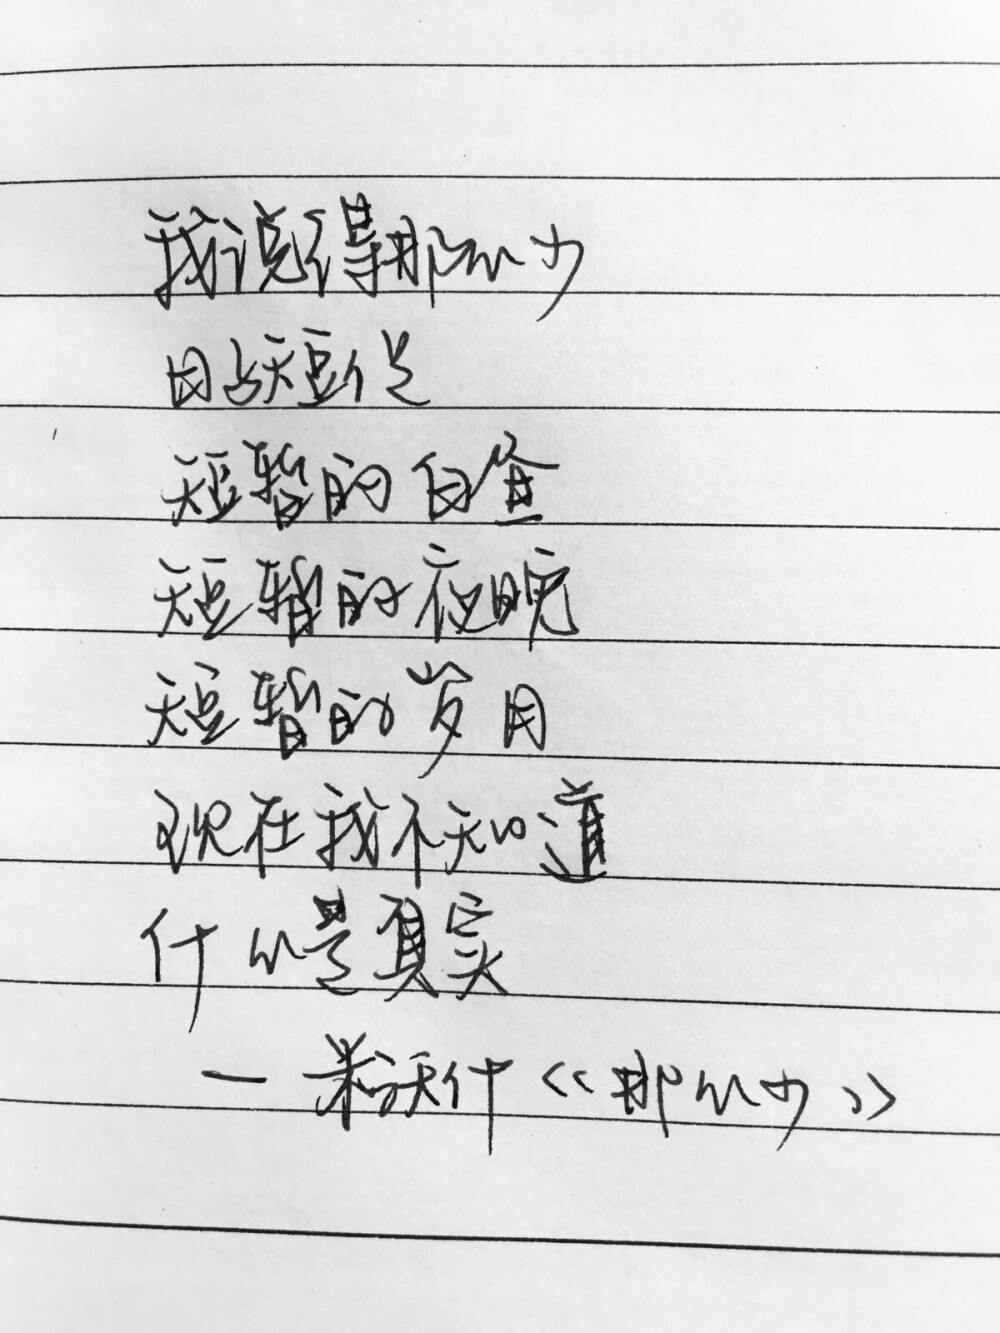 我说得那么少
日子短促
短暂的白昼
短暂的夜晚
短暂的岁月
现在我不知道
什么是真实
— 米沃什《那么少》